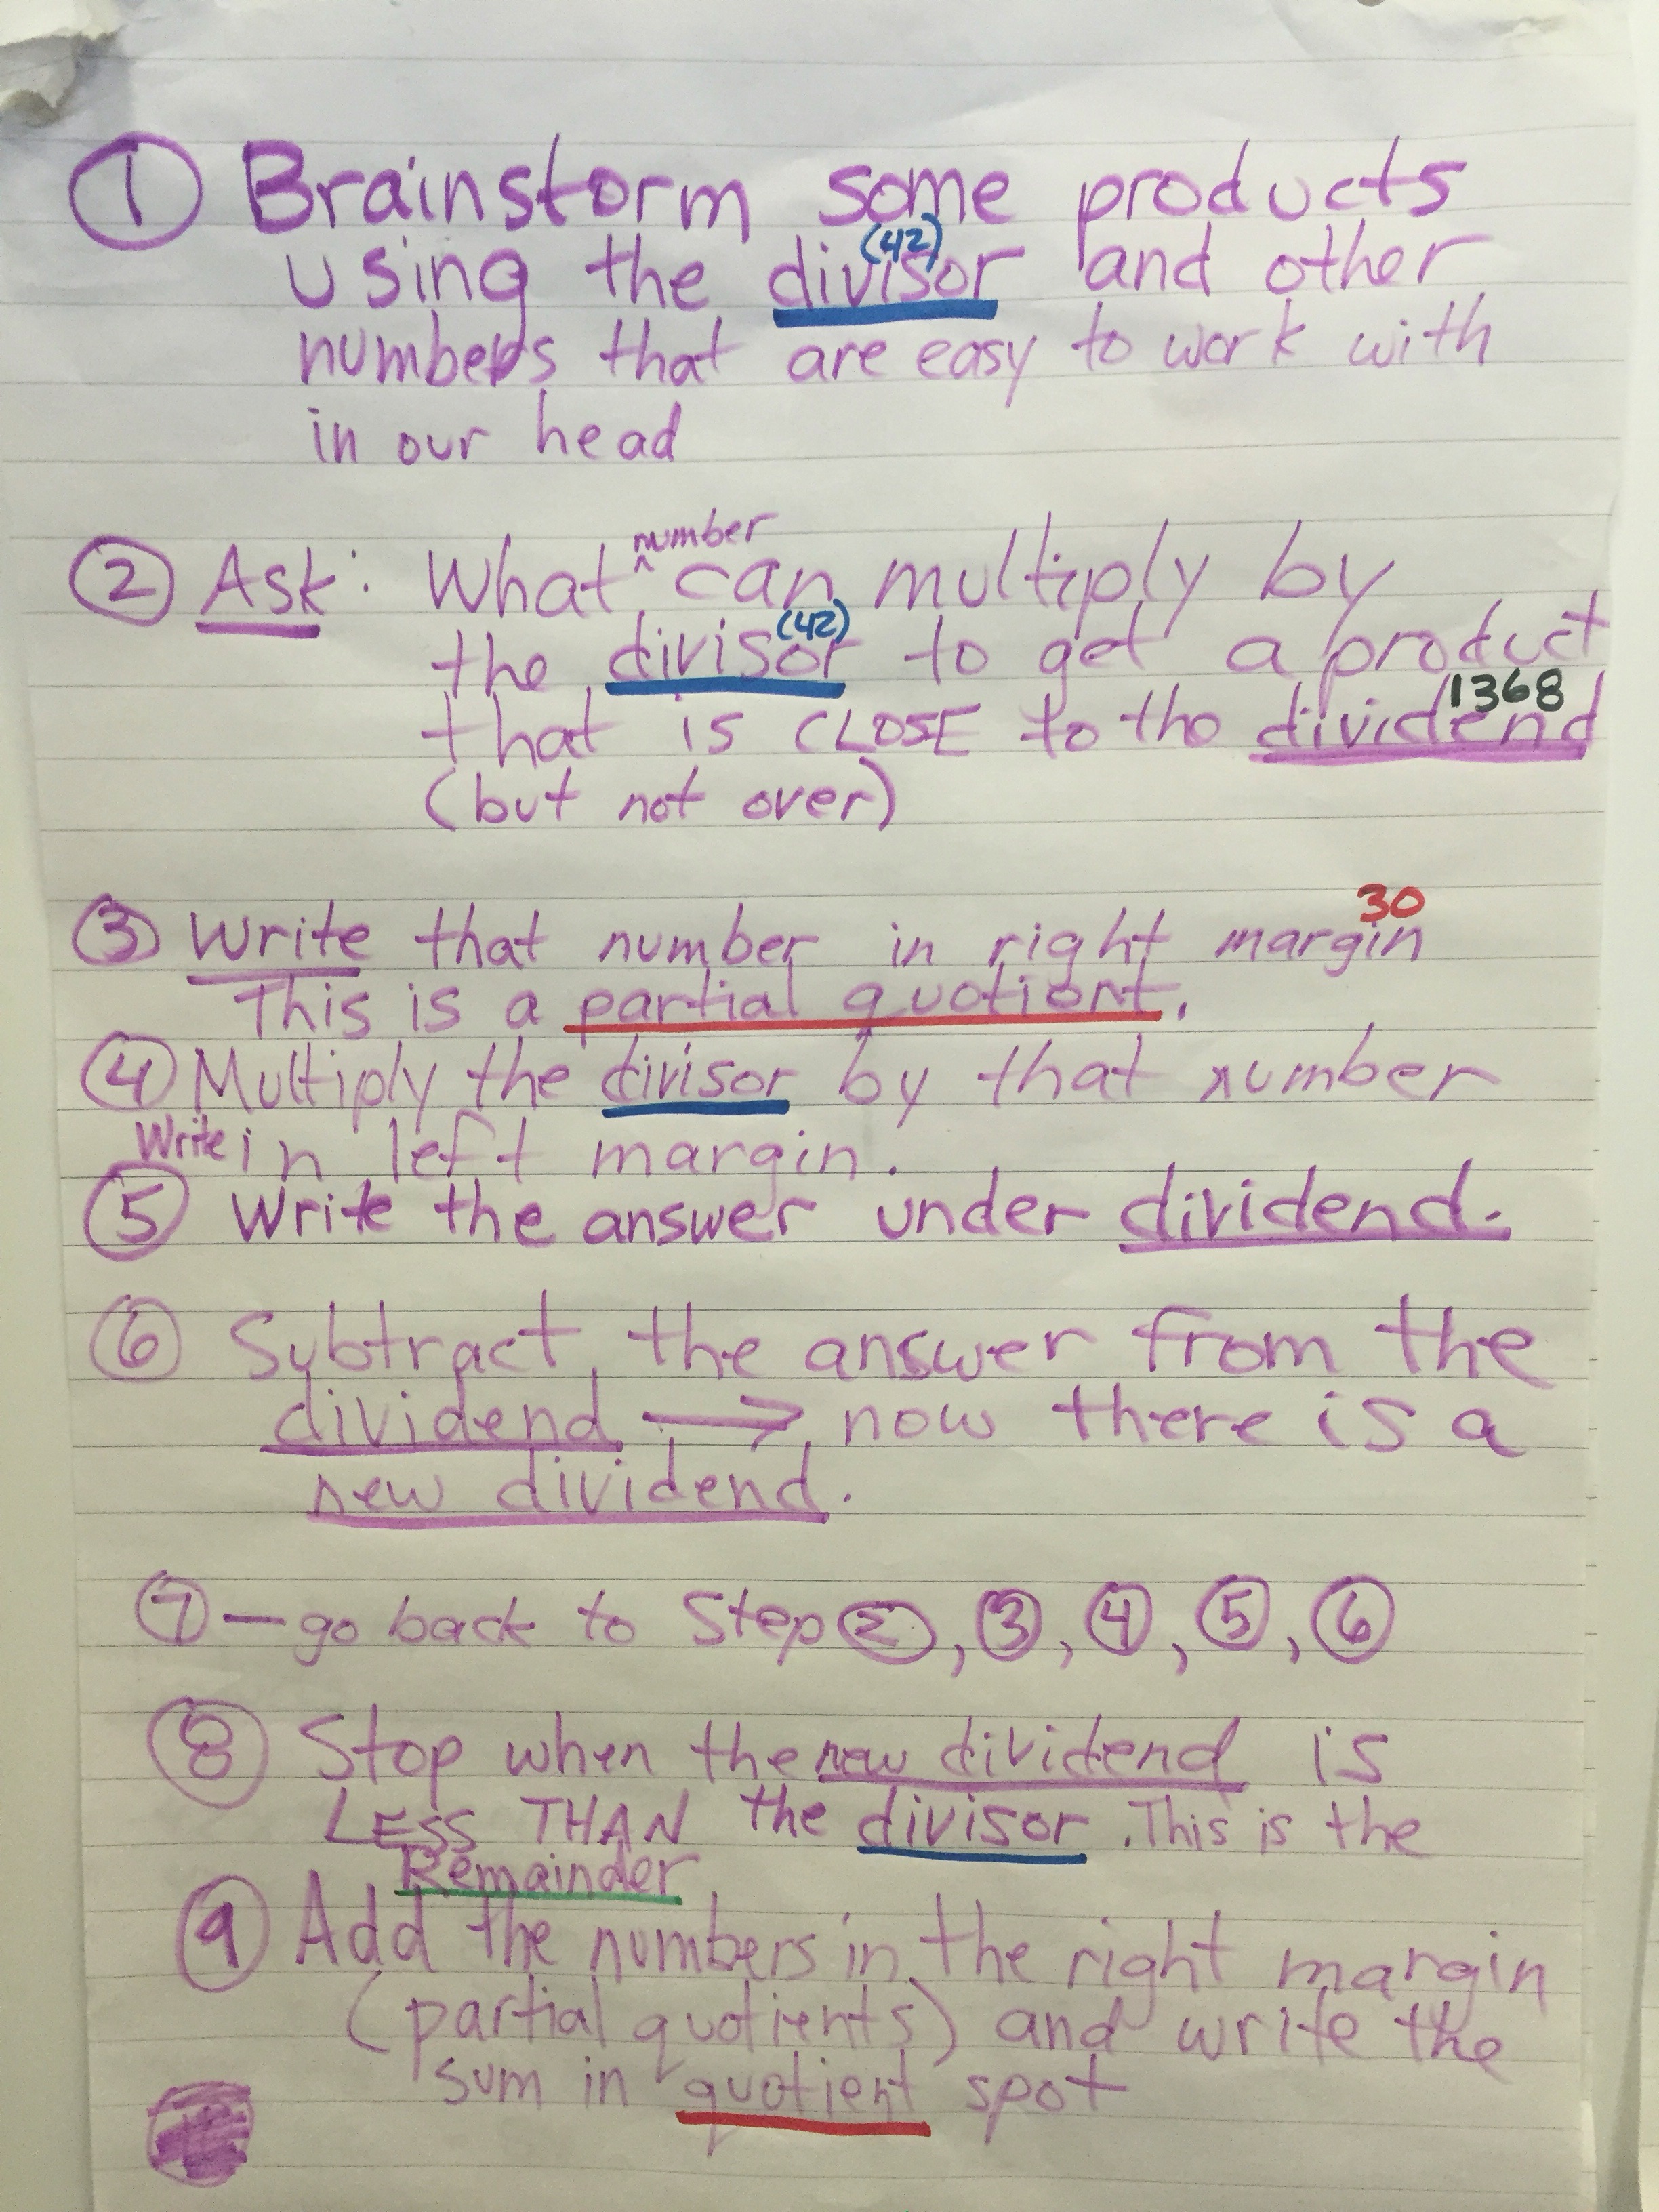 ① Brainstorm some products
(42)
using the divisor and other
numbers that are easy to work with
in our head
number
② Ask: What ^ can multiply by
(42)
the divisor to get a product
1368
that is CLOSE to the dividend
(but not over)
30
③ Write that number in right margin
This is a partial quotient.
④ Multiply the divisor by that number
Write in left margin.
⑤ Write the answer under dividend.
⑥ Subtract the answer from the
dividend → now there is a
new dividend.
⑦ — go back to Step ②, ③, ④, ⑤, ⑥
⑧ Stop when the new dividend is
LESS THAN the divisor. This is the
Remainder
⑨ Add the numbers in the right margin
(partial quotients) and write the
sum in quotient spot